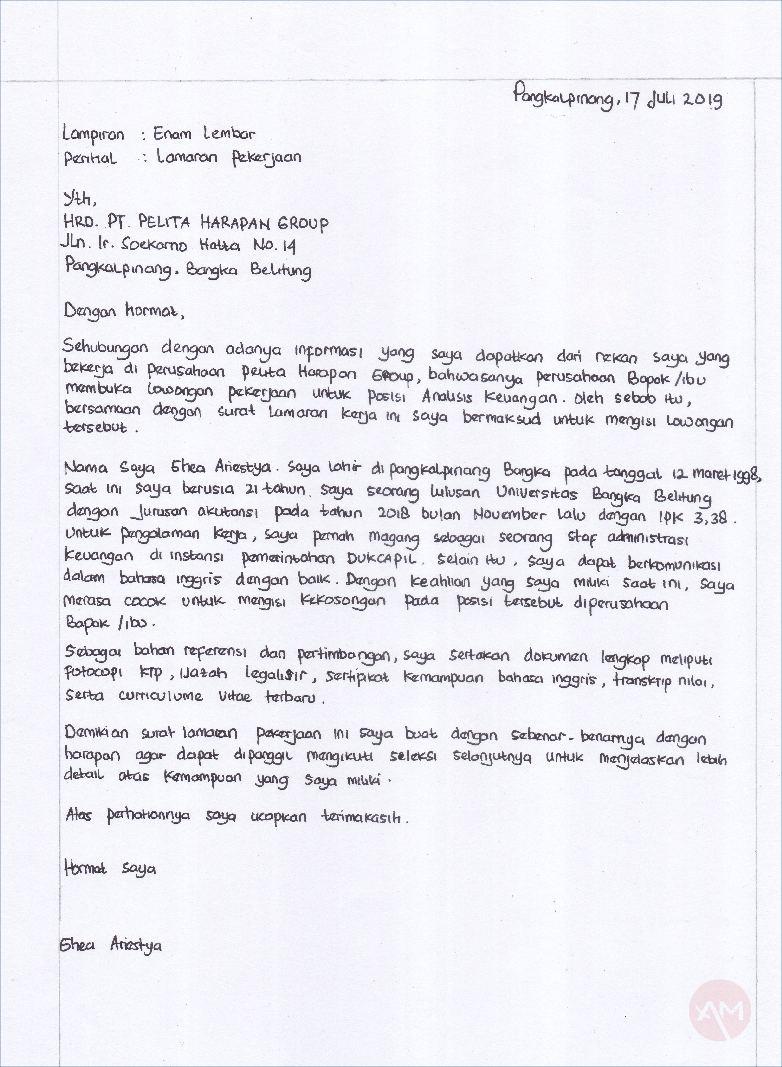 Pangkalpinang, 17 Juli 2019
Lampiran : Enam Lembar
Perihal : Lamaran Pekerjaan
Yth,
HRD. PT. PELITA HARAPAN GROUP
Jln. Ir. Soekarno Hatta No. 14
Pangkalpinang. Bangka Belitung
Dengan hormat,
Sehubungan dengan adanya informasi yang saya dapatkan dari rekan saya yang
bekerja di perusahaan Pelita Harapan Group, bahwasanya perusahaan Bapak/ibu
membuka lowongan pekerjaan untuk posisi Analisis Keuangan. Oleh sebab itu,
bersamaan dengan surat lamaran kerja ini saya bermaksud untuk mengisi lowongan
tersebut.
Nama Saya Ghea Ariestya. Saya lahir di pangkalpinang Bangka pada tanggal 12 maret 1998,
saat ini saya berusia 21 tahun. Saya seorang lulusan Universitas Bangka Belitung
dengan Jurusan akutansi pada tahun 2018 bulan November lalu dengan IPK 3,38.
Untuk pengalaman kerja, saya pernah magang sebagai seorang staf administrasi
Keuangan di instansi pemerintahan DUKCAPIL. Selain itu, saya dapat berkomunikasi
dalam bahasa inggris dengan baik. Dengan keahlian yang saya miliki saat ini, saya
merasa cocok untuk mengisi kekosongan pada posisi tersebut diperusahaan
Bapak /ibu.
Sebagai bahan referensi dan pertimbangan, saya sertakan dokumen lengkap meliputi
fotocopi KTP, ijazah legalisir, sertipikat kemampuan bahasa inggris, transkrip nilai,
serta curriculume vitae terbaru.
Demikian surat lamaran pekerjaan ini saya buat dengan sebenar-benarnya dengan
harapan agar dapat dipanggil mengikuti seleksi selanjutnya untuk menjelaskan lebih
detail atas kemampuan yang saya miliki.
Atas perhatiannya saya ucapkan terimakasih.
Hormat saya
Ghea Ariestya
XAM